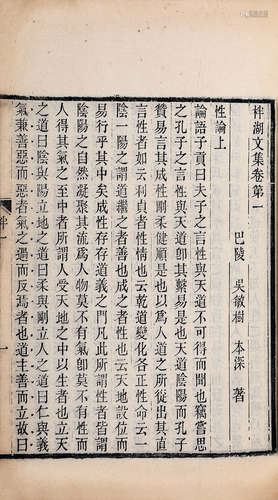 柈湖文集卷第一
巴陵 吳敏樹 本深 著
性論上
論語子貢曰夫子之言性與天道不可得而聞也竊嘗思
之孔子之言性與天道卽其繫易是也天道陰陽而孔子
贊易言其成形剛柔健順是也以爲人道之所從出其直
言性者如云利貞者性情也云乾道變化各正性命云一
陰一陽之謂道繼之者善也成之者性也云天地設位而
易行乎其中矣成性存存道義之門凡此所謂性者皆謂
陰陽之自然凝聚其流爲人物莫不有氣卽莫不有性而
人得其氣之至中者所謂人受天地之中以生者也立天
之道曰陰與陽立地之道曰柔與剛立人之道曰仁與義
氣兼善惡而惡者氣之過而反焉者也道主善而立故曰
卷一
一